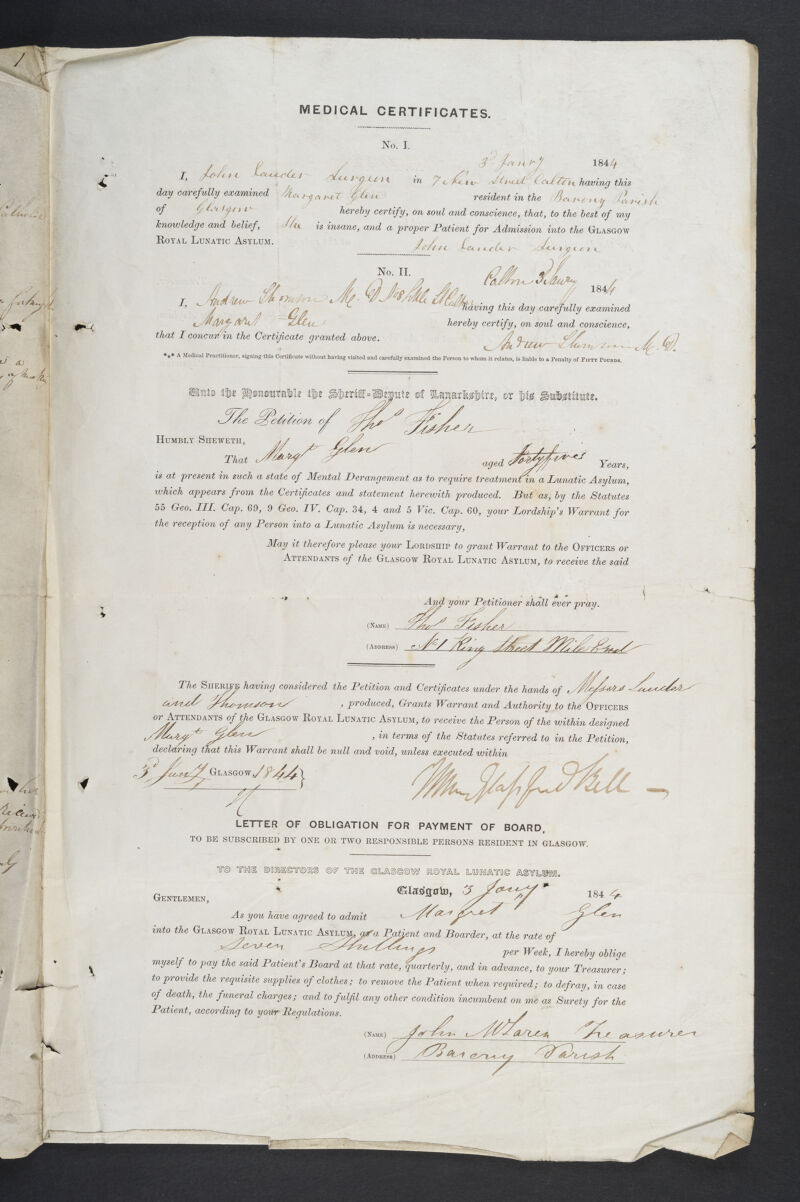 MEDICAL CERTIFICATES.
No. I.
3d Jany 1844
I, John Lauder Surgeon in 7 New Street Calton having this
day carefully examined Margaret Glen resident in the Barony Parish
of Glasgow hereby certify, on soul and conscience, that, to the best of my
knowledge and belief, She is insane, and a proper Patient for Admission into the GLASGOW
ROYAL LUNATIC ASYLUM.
John Lauder Surgeon
No. II.
Calton 3 Jany 1844
I, Andrew Thomson M. D. having this day carefully examined
Margaret Glen hereby certify, on soul and conscience,
that I concur in the Certificate granted above.
Andrew Thomson M. D.
*** A Medical Practitioner, signing this Certificate without having visited and carefully examined the Person to whom it relates, is liable to a Penalty of FIFTY POUNDS.
Unto the Honourable the Sheriff-Depute of Lanarkshire, or his Substitute.
The Petition of Thos Fisher
HUMBLY SHEWETH,
That Margt Glen aged Forty five Years,
is at present in such a state of Mental Derangement as to require treatment in a Lunatic Asylum,
which appears from the Certificates and statement herewith produced. But as, by the Statutes
55 Geo. III. Cap. 69, 9 Geo. IV. Cap. 34, 4 and 5 Vic. Cap. 60, your Lordship's Warrant for
the reception of any Person into a Lunatic Asylum is necessary,
May it therefore please your LORDSHIP to grant Warrant to the OFFICERS or
ATTENDANTS of the GLASGOW ROYAL LUNATIC ASYLUM, to receive the said
And your Petitioner shall ever pray.
(NAME) Thos Fisher
(ADDRESS) No 1 King Street Mile End
The SHERIFF having considered the Petition and Certificates under the hands of Messrs Lauder
and Thomson, produced, Grants Warrant and Authority to the OFFICERS
or ATTENDANTS of the GLASGOW ROYAL LUNATIC ASYLUM, to receive the Person of the within designed
Margt Glen, in terms of the Statutes referred to in the Petition,
declaring that this Warrant shall be null and void, unless executed within
3d Jany GLASGOW 1844}
Glassford Bell
LETTER OF OBLIGATION FOR PAYMENT OF BOARD,
TO BE SUBSCRIBED BY ONE OR TWO RESPONSIBLE PERSONS RESIDENT IN GLASGOW.
TO THE DIRECTORS OF THE GLASGOW ROYAL LUNATIC ASYLUM.
Glasgow, 3 Jany 1844
GENTLEMEN,
As you have agreed to admit Margret Glen
into the GLASGOW ROYAL LUNATIC ASYLUM, as a Patient and Boarder, at the rate of
Seven Shillings per Week, I hereby oblige
myself to pay the said Patient's Board at that rate, quarterly, and in advance, to your Treasurer;
to provide the requisite supplies of clothes; to remove the Patient when required; to defray, in case
of death, the funeral charges; and to fulfil any other condition incumbent on me as Surety for the
Patient, according to your Regulations.
(NAME) John McLaren Treasurer
(ADDRESS) Barony Parish